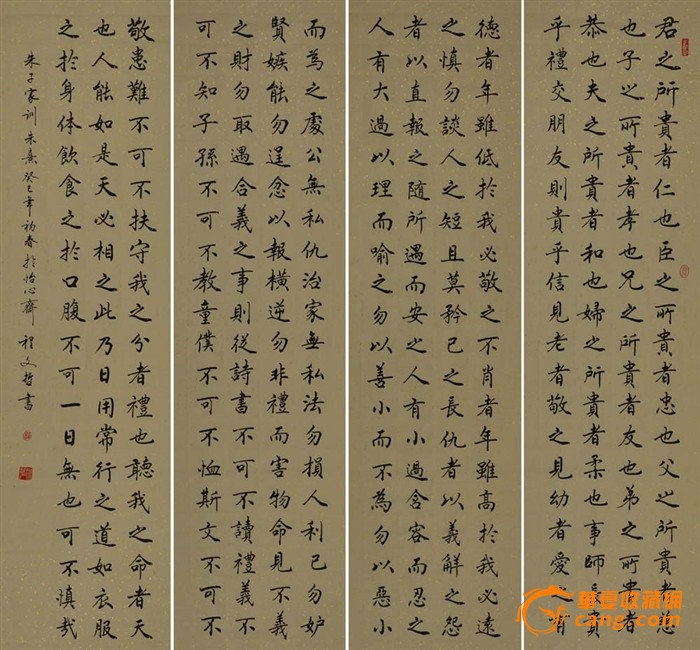 君之所貴者仁也臣之所貴者忠也父之所貴者慈
也子之所貴者孝也兄之所貴者友也弟之所貴者
恭也夫之所貴者和也婦之所貴者柔也事師長貴
乎禮交朋友則貴乎信見老者敬之見幼者愛之有
德者年雖低於我必敬之不肖者年雖高於我必遠
之慎勿談人之短且莫矜己之長仇者以義解之怨
者以直報之隨所遇而安之人有小過含容而忍之
人有大過以理而喻之勿以善小而不為勿以惡小
而為之處公無私仇治家無私法勿損人利己勿妒
賢嫉能勿逞忿以報橫逆勿非禮而害物命見不義
之財勿取遇合義之事則從詩書不可不讀禮義不
可不知子孫不可不教童僕不可不恤斯文不可不
敬患難不可不扶守我之分者禮也聽我之命者天
也人能如是天必相之此乃日用常行之道如衣服
之於身体飲食之於口腹不可一日無也可不慎哉
朱子家訓 朱熹 癸巳年初春於怡心齋 程文哲書
華夏收藏网
cang.com